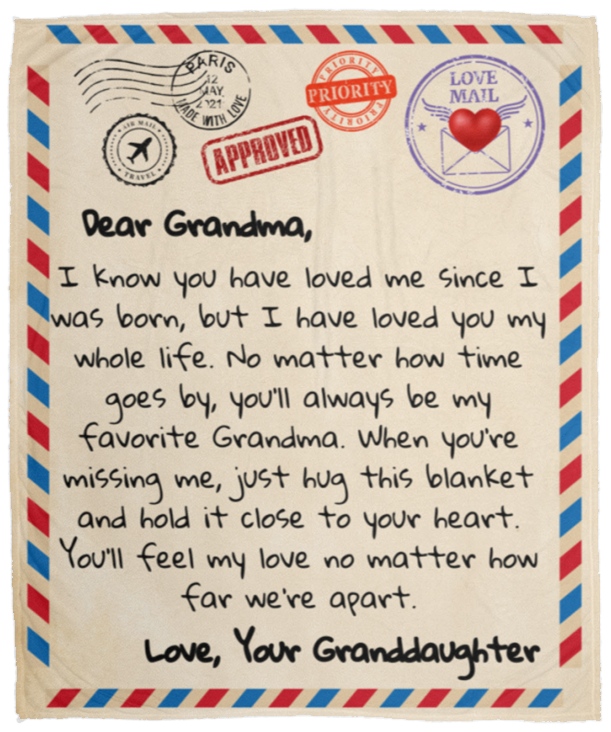 PARIS
12
MAY
2021
MADE WITH LOVE
PRIORITY
PRIORITY
PRIORITY
LOVE
MAIL
AIR MAIL
TRAVEL
APPROVED
Dear Grandma,
I know you have loved me since I
was born, but I have loved you my
whole life. No matter how time
goes by, you'll always be my
favorite Grandma. When you're
missing me, just hug this blanket
and hold it close to your heart.
You'll feel my love no matter how
far we're apart.
Love, Your Granddaughter